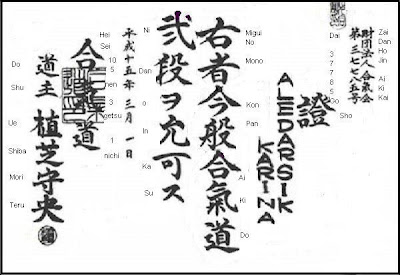 財団法人 合氣会
Zai Dan Ho Jin Ai Ki Kai
第三七七八五号
Dai 3 7 7 8 5 Go
證
Sho
ALEDARSIK
KARINA
右者今般合氣道
Migui No Mono Kon Pan Ai Ki Do
弐段ヲ允可ス
Ni Dan o In Ka Su
平成十五年三月一日
Hei Sei 10 5 nen 3 getsu 1 nichi
合氣道
道主 植芝守央
Do Shu Ue Shiba Mori Teru